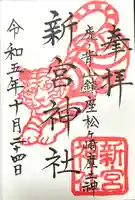 奉拝
虎背山鎮座松ヶ崎産土神
新宮神社
令和五年十月二十四日
新宮